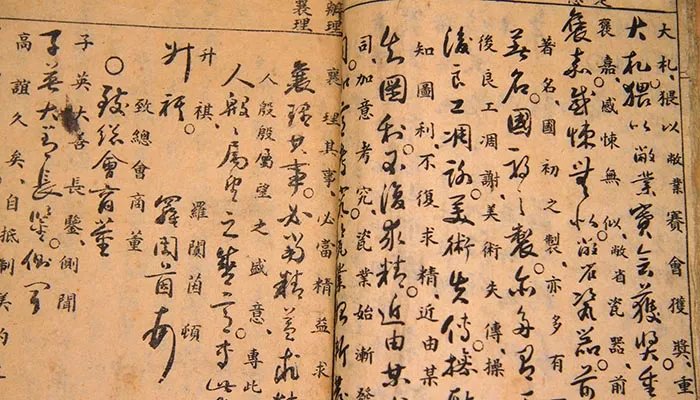 大札、猥以敝業賽會獲獎、重
大札猥以敝業賽會獲獎重
褒嘉、感悚無似、敝省瓷器、前
褒嘉感悚無似敝省瓷器前
著名、國初之製、亦多有
名國初之製亦多
後良工凋謝、美術失傳、操
後良工凋謝美術失傳操
知圖利、不復求精、近由某
知圖利不復求精近由某
司、加意考究、瓷業始漸發
辦理
襄理
襄理其事、必當精益求
襄理其事必當精益求
人殷殷屬望之盛意、專此
人殷殷屬望之盛意專此
升祺、羅閬茵頓
升祺 羅閬茵頓
致總會商董
○致總會商董
子英大善長鑒、側聞
子英大善長鑒側聞
高誼久矣、自抵制美約